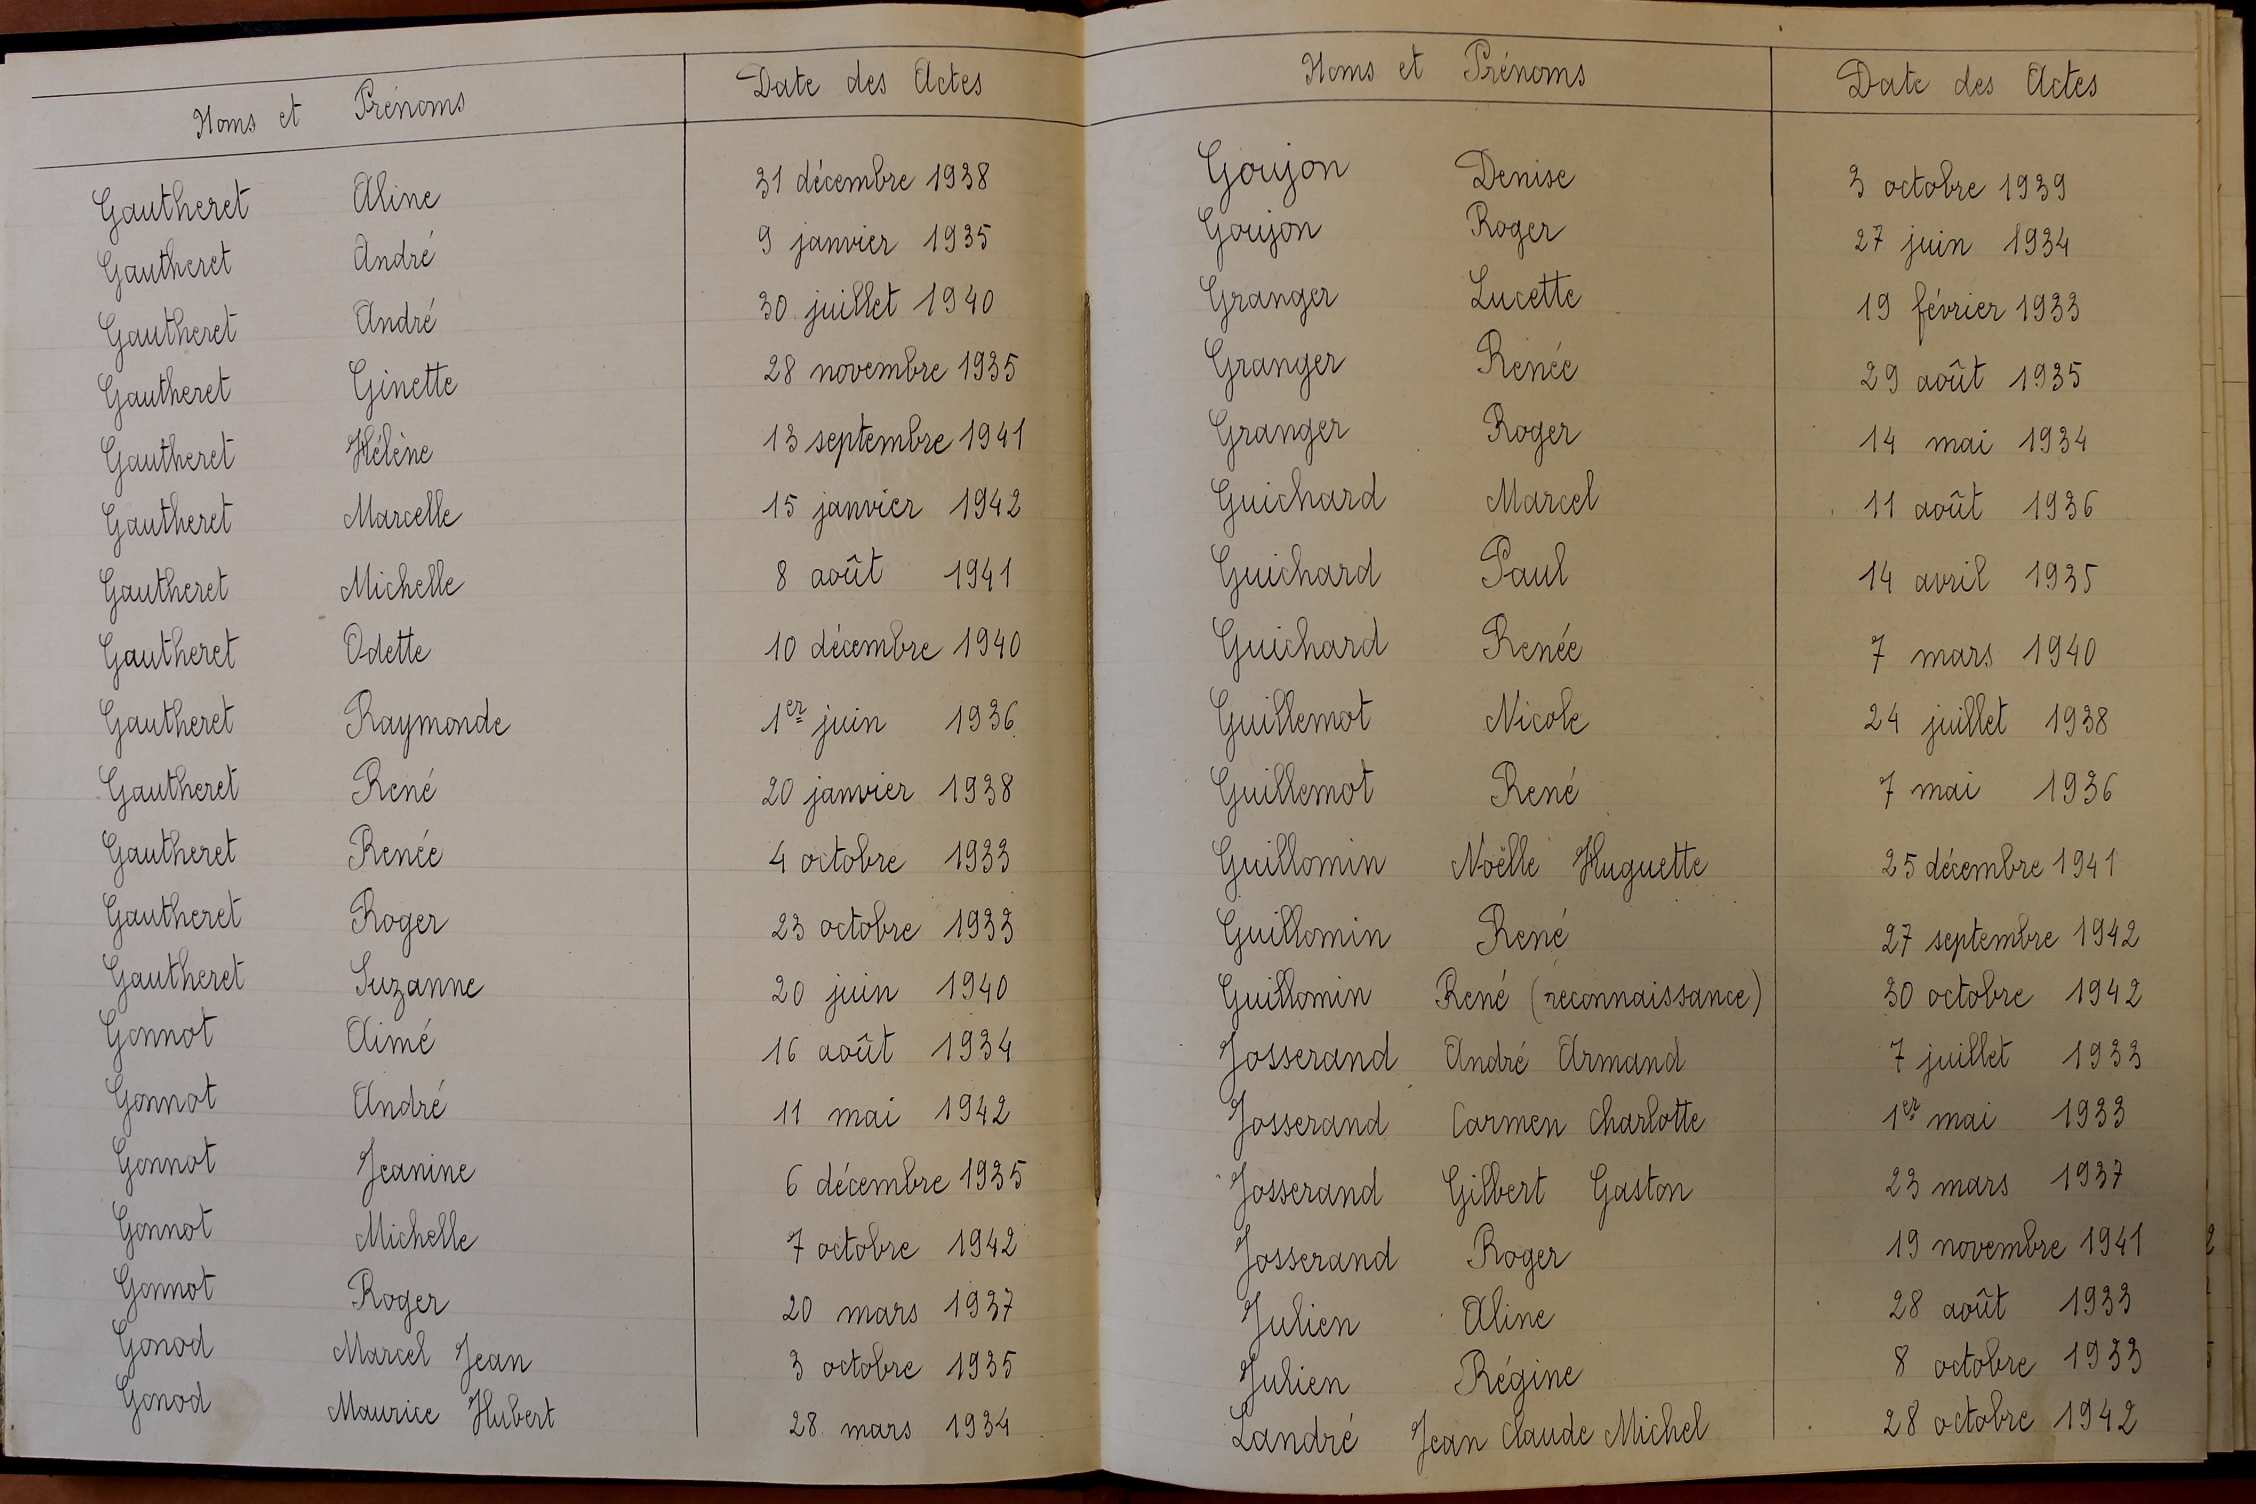 Noms et Prénoms Date des Actes
Gautheret Aline 31 décembre 1938
Gautheret André 9 janvier 1935
Gautheret André 30 juillet 1940
Gautheret Ginette 28 novembre 1935
Gautheret Hélène 13 septembre 1941
Gautheret Marcelle 15 janvier 1942
Gautheret Michelle 8 août 1941
Gautheret Odette 10 décembre 1940
Gautheret Raymonde 1er juin 1936
Gautheret René 20 janvier 1938
Gautheret Renée 4 octobre 1933
Gautheret Roger 23 octobre 1933
Gautheret Suzanne 20 juin 1940
Gonnot Aimé 16 août 1934
Gonnot André 11 mai 1942
Gonnot Jeanine 6 décembre 1935
Gonnot Michelle 7 octobre 1942
Gonnot Roger 20 mars 1937
Gonod Marcel Jean 3 octobre 1935
Gonod Maurice Hubert 28 mars 1934
Noms et Prénoms Date des Actes
Goujon Denise 3 octobre 1939
Goujon Roger 27 juin 1934
Granger Lucette 19 février 1933
Granger Renée 29 août 1935
Granger Roger 14 mai 1934
Guichard Marcel 11 août 1936
Guichard Paul 14 avril 1935
Guichard Renée 7 mars 1940
Guillemot Nicole 24 juillet 1938
Guillemot René 7 mai 1936
Guillomin Noëlle Huguette 25 décembre 1941
Guillomin René 27 septembre 1942
Guillomin René (reconnaissance) 30 octobre 1942
Josserand André Armand 7 juillet 1933
Josserand Carmen Charlotte 1er mai 1933
Josserand Gilbert Gaston 23 mars 1937
Josserand Roger 19 novembre 1941
Julien Aline 28 août 1933
Julien Régine 8 octobre 1933
Landré Jean Claude Michel 28 octobre 1942